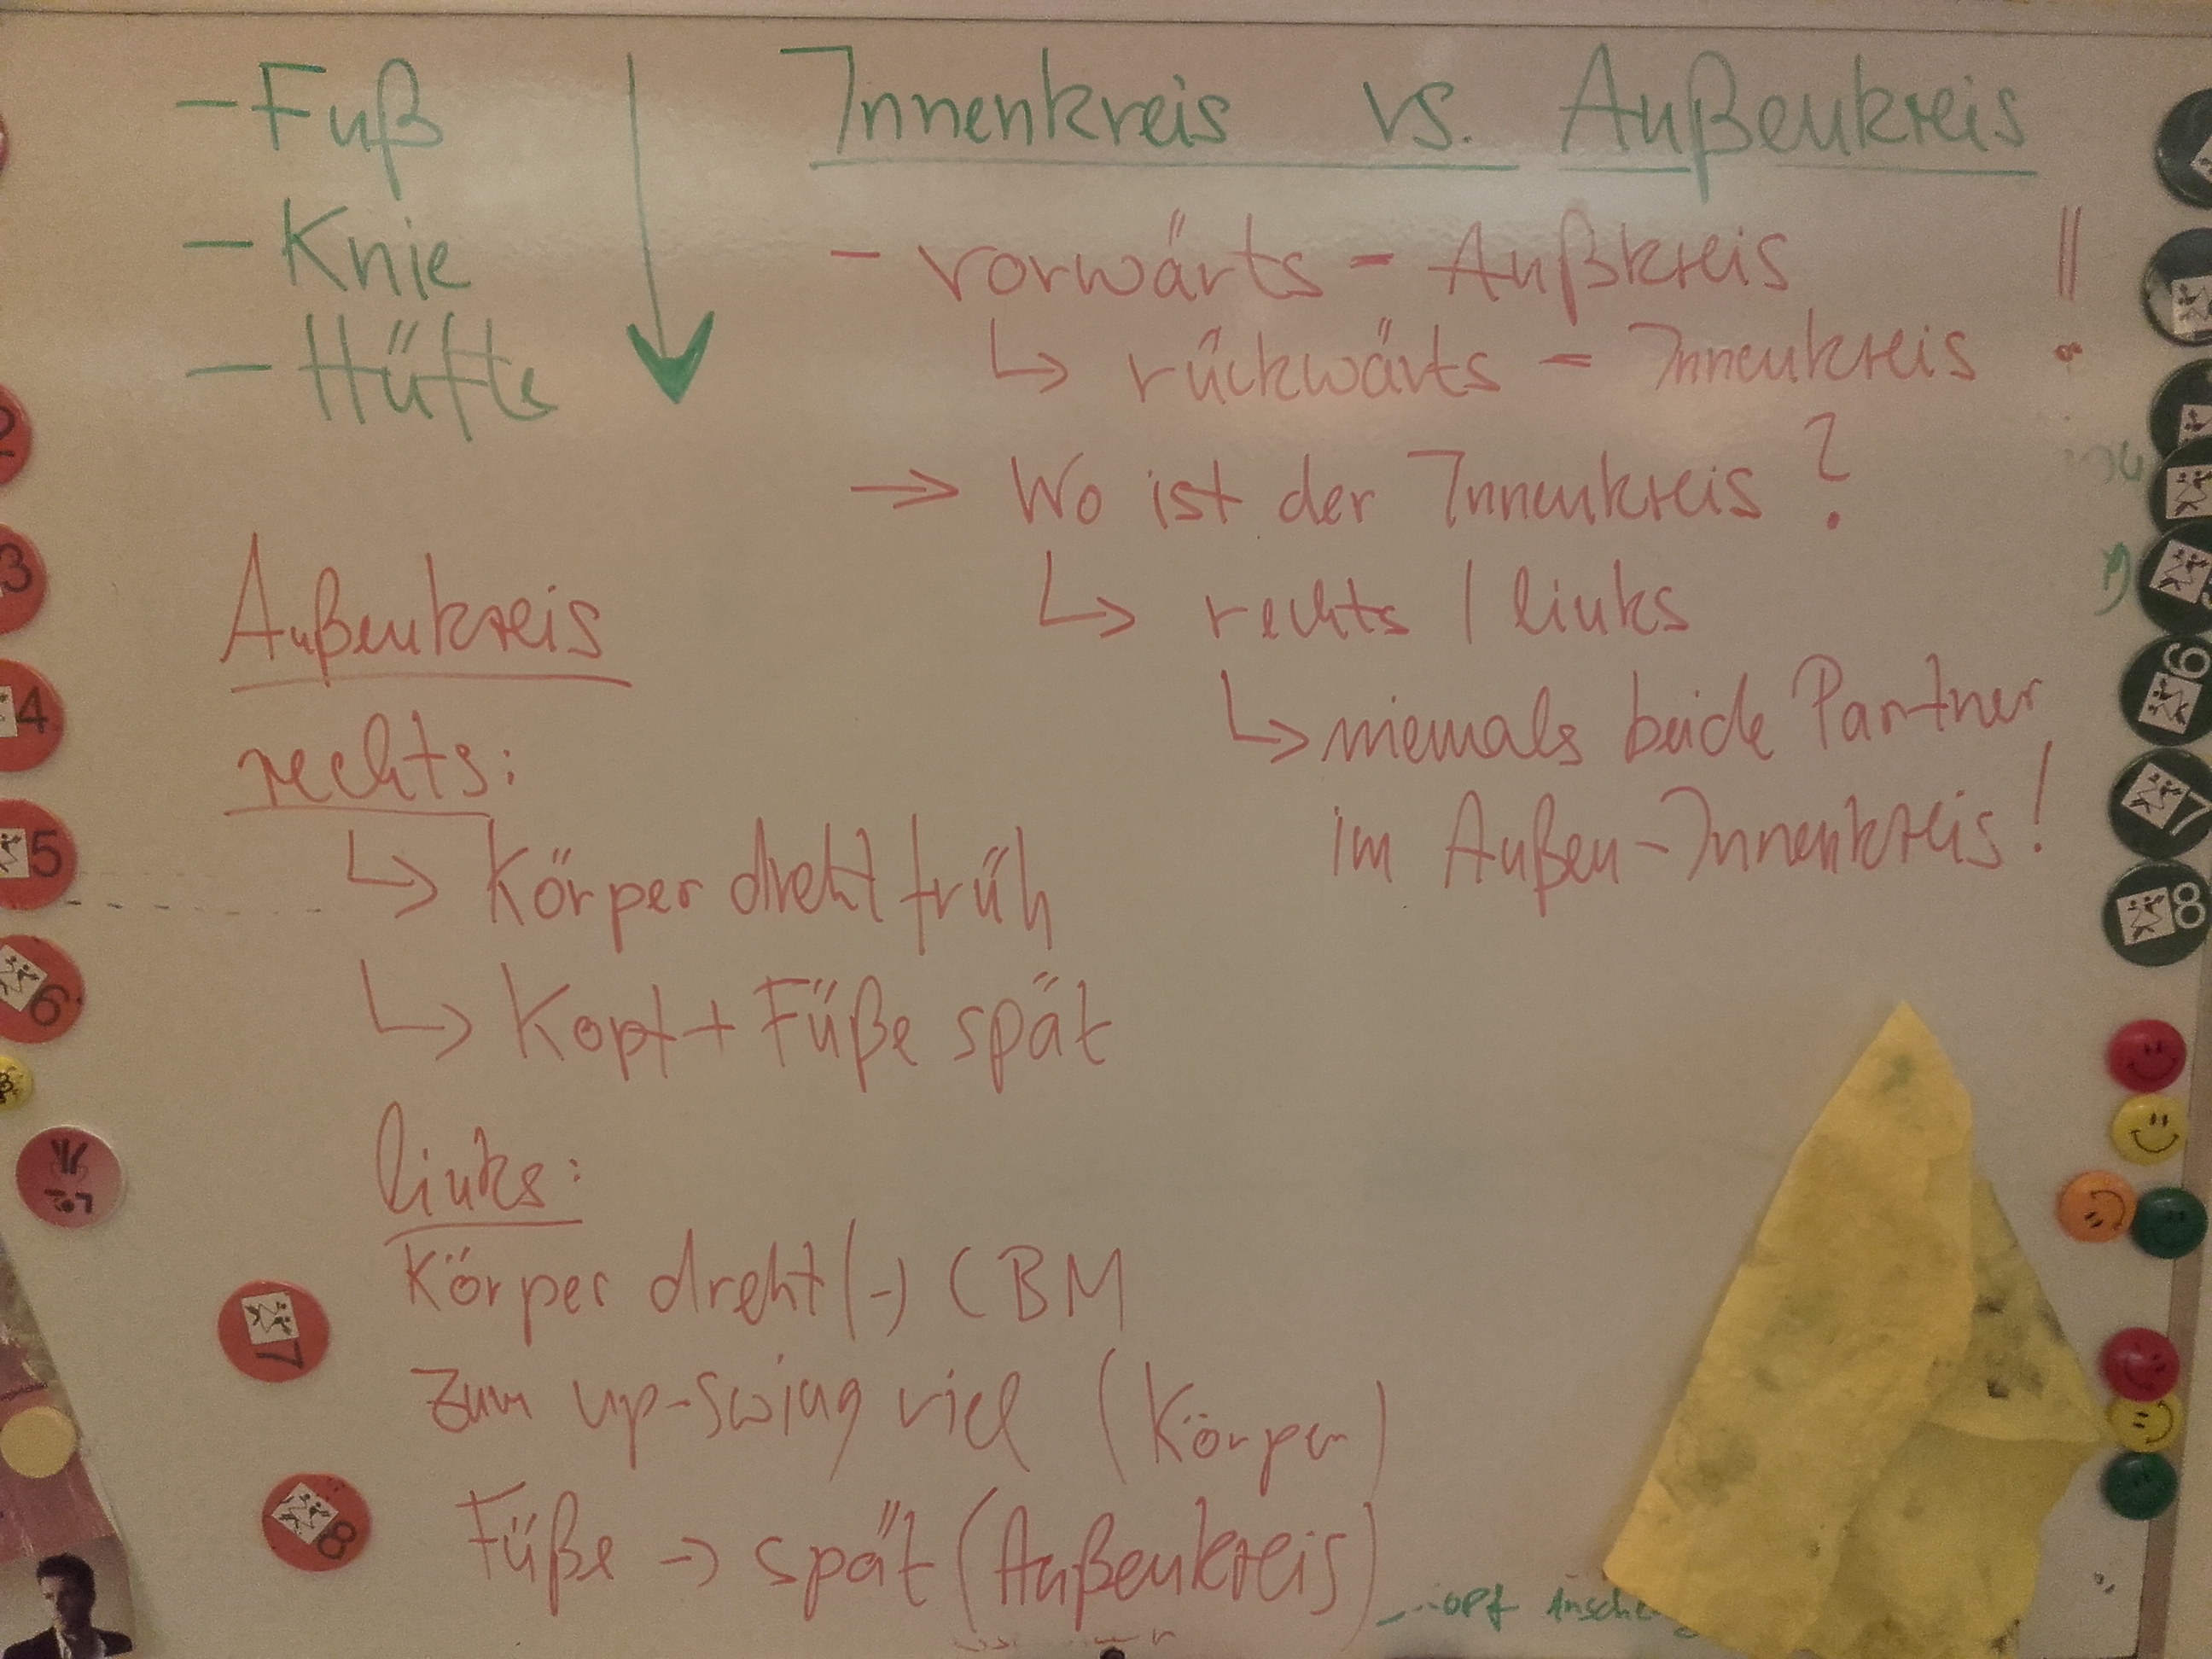 - Fuß
- Knie
- Hüfte
Innenkreis vs. Außenkreis
- vorwärts - Außkreis
↳ rückwärts - Innenkreis
!!
→ Wo ist der Innenkreis?
↳ rechts / links
↳ niemals beide Partner
im Außen-Innenkreis!
Außenkreis
rechts:
↳ Körper dreht früh
↳ Kopf + Füße spät
links:
Körper dreht (-) CBM
zum up-swing viel (Körper)
Füße → spät (Außenkreis)
2
3
4
5
6
7
8
6
7
8